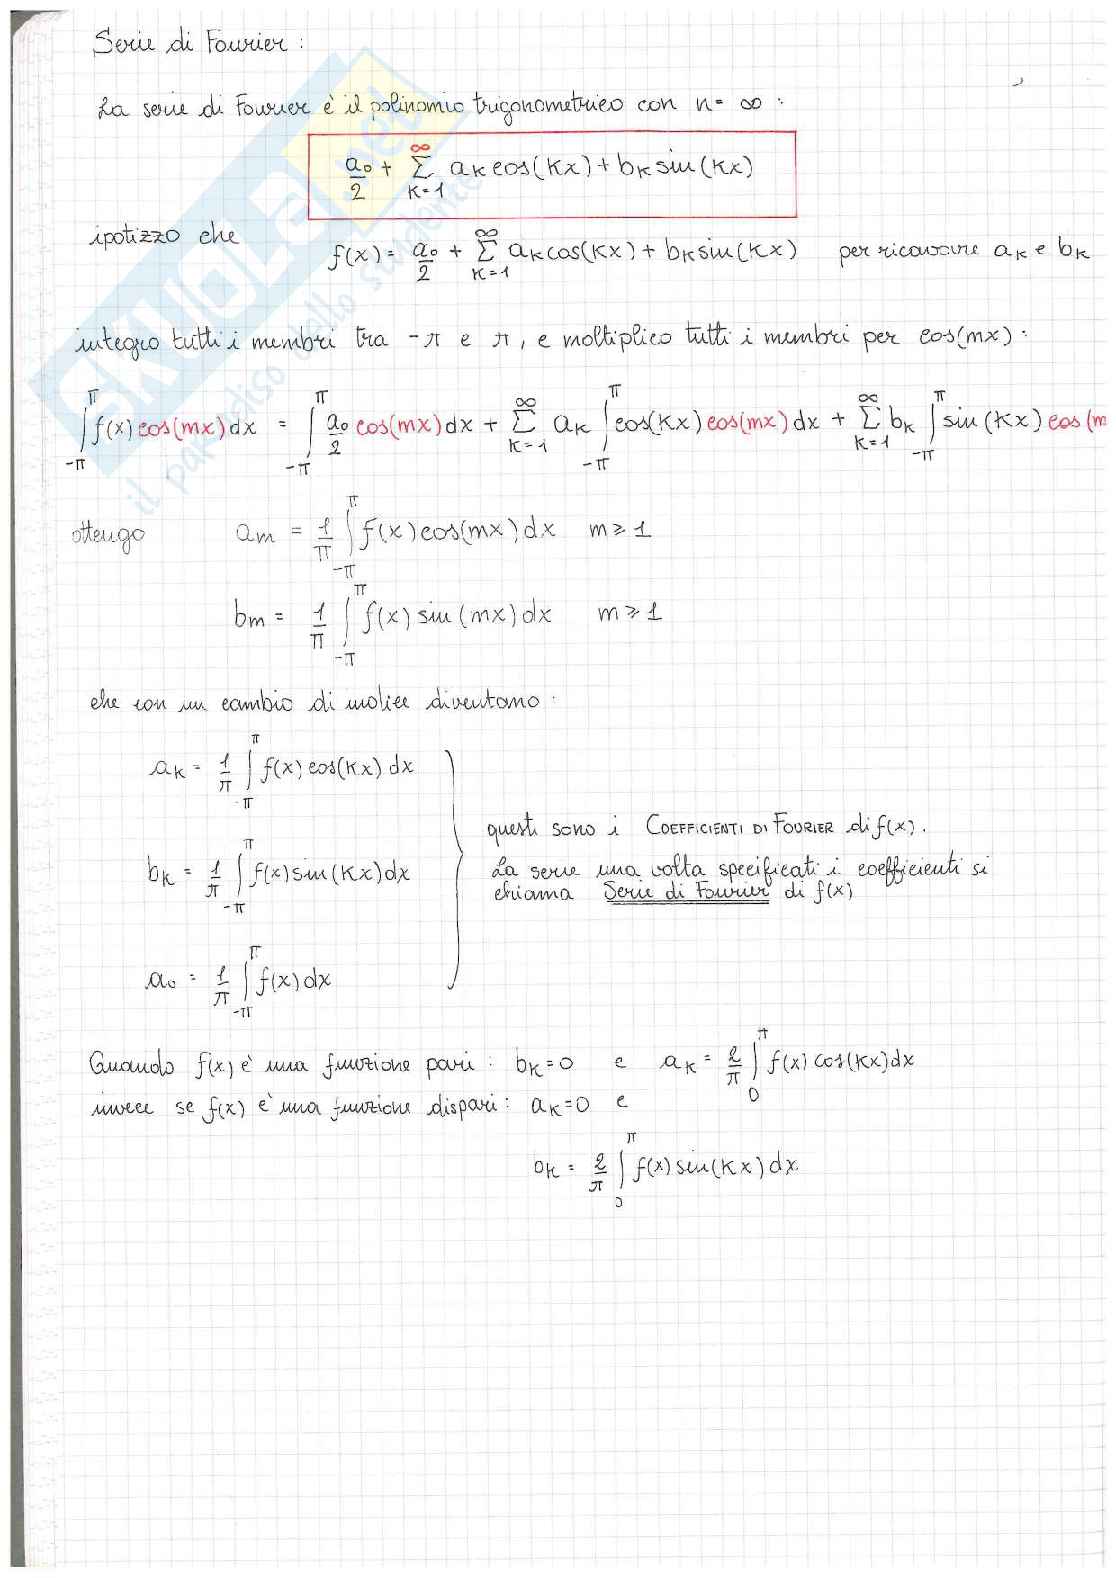 Serie di Fourier:
La serie di Fourier è il polinomio trigonometrico con n = ∞ :
a₀/2 + ∑_{K=1}^{∞} aₖ cos(Kx) + bₖ sin(Kx)
ipotizzo che f(x) = a₀/2 + ∑_{K=1}^{∞} aₖ cos(Kx) + bₖ sin(Kx) per ricavare aₖ e bₖ
integro tutti i membri tra -π e π, e moltiplico tutti i membri per cos(mx):
∫_{-π}^{π} f(x) cos(mx) dx = ∫_{-π}^{π} a₀/2 cos(mx) dx + ∑_{K=1}^{∞} aₖ ∫_{-π}^{π} cos(Kx) cos(mx) dx + ∑_{K=1}^{∞} bₖ ∫_{-π}^{π} sin(Kx) cos(m
ottengo aₘ = 1/π ∫_{-π}^{π} f(x) cos(mx) dx m ≥ 1
bₘ = 1/π ∫_{-π}^{π} f(x) sin(mx) dx m ≥ 1
che con un cambio di indice diventano:
aₖ = 1/π ∫_{-π}^{π} f(x) cos(Kx) dx
bₖ = 1/π ∫_{-π}^{π} f(x) sin(Kx) dx
a₀ = 1/π ∫_{-π}^{π} f(x) dx
questi sono i COEFFICIENTI DI FOURIER di f(x).
La serie una volta specificati i coefficienti si
chiama Serie di Fourier di f(x)
Quando f(x) è una funzione pari: bₖ=0 e aₖ = 2/π ∫_{0}^{π} f(x) cos(Kx) dx
invece se f(x) è una funzione dispari: aₖ=0 e
bₖ = 2/π ∫_{0}^{π} f(x) sin(Kx) dx.
SKUOLA.net
il paradiso dello studente